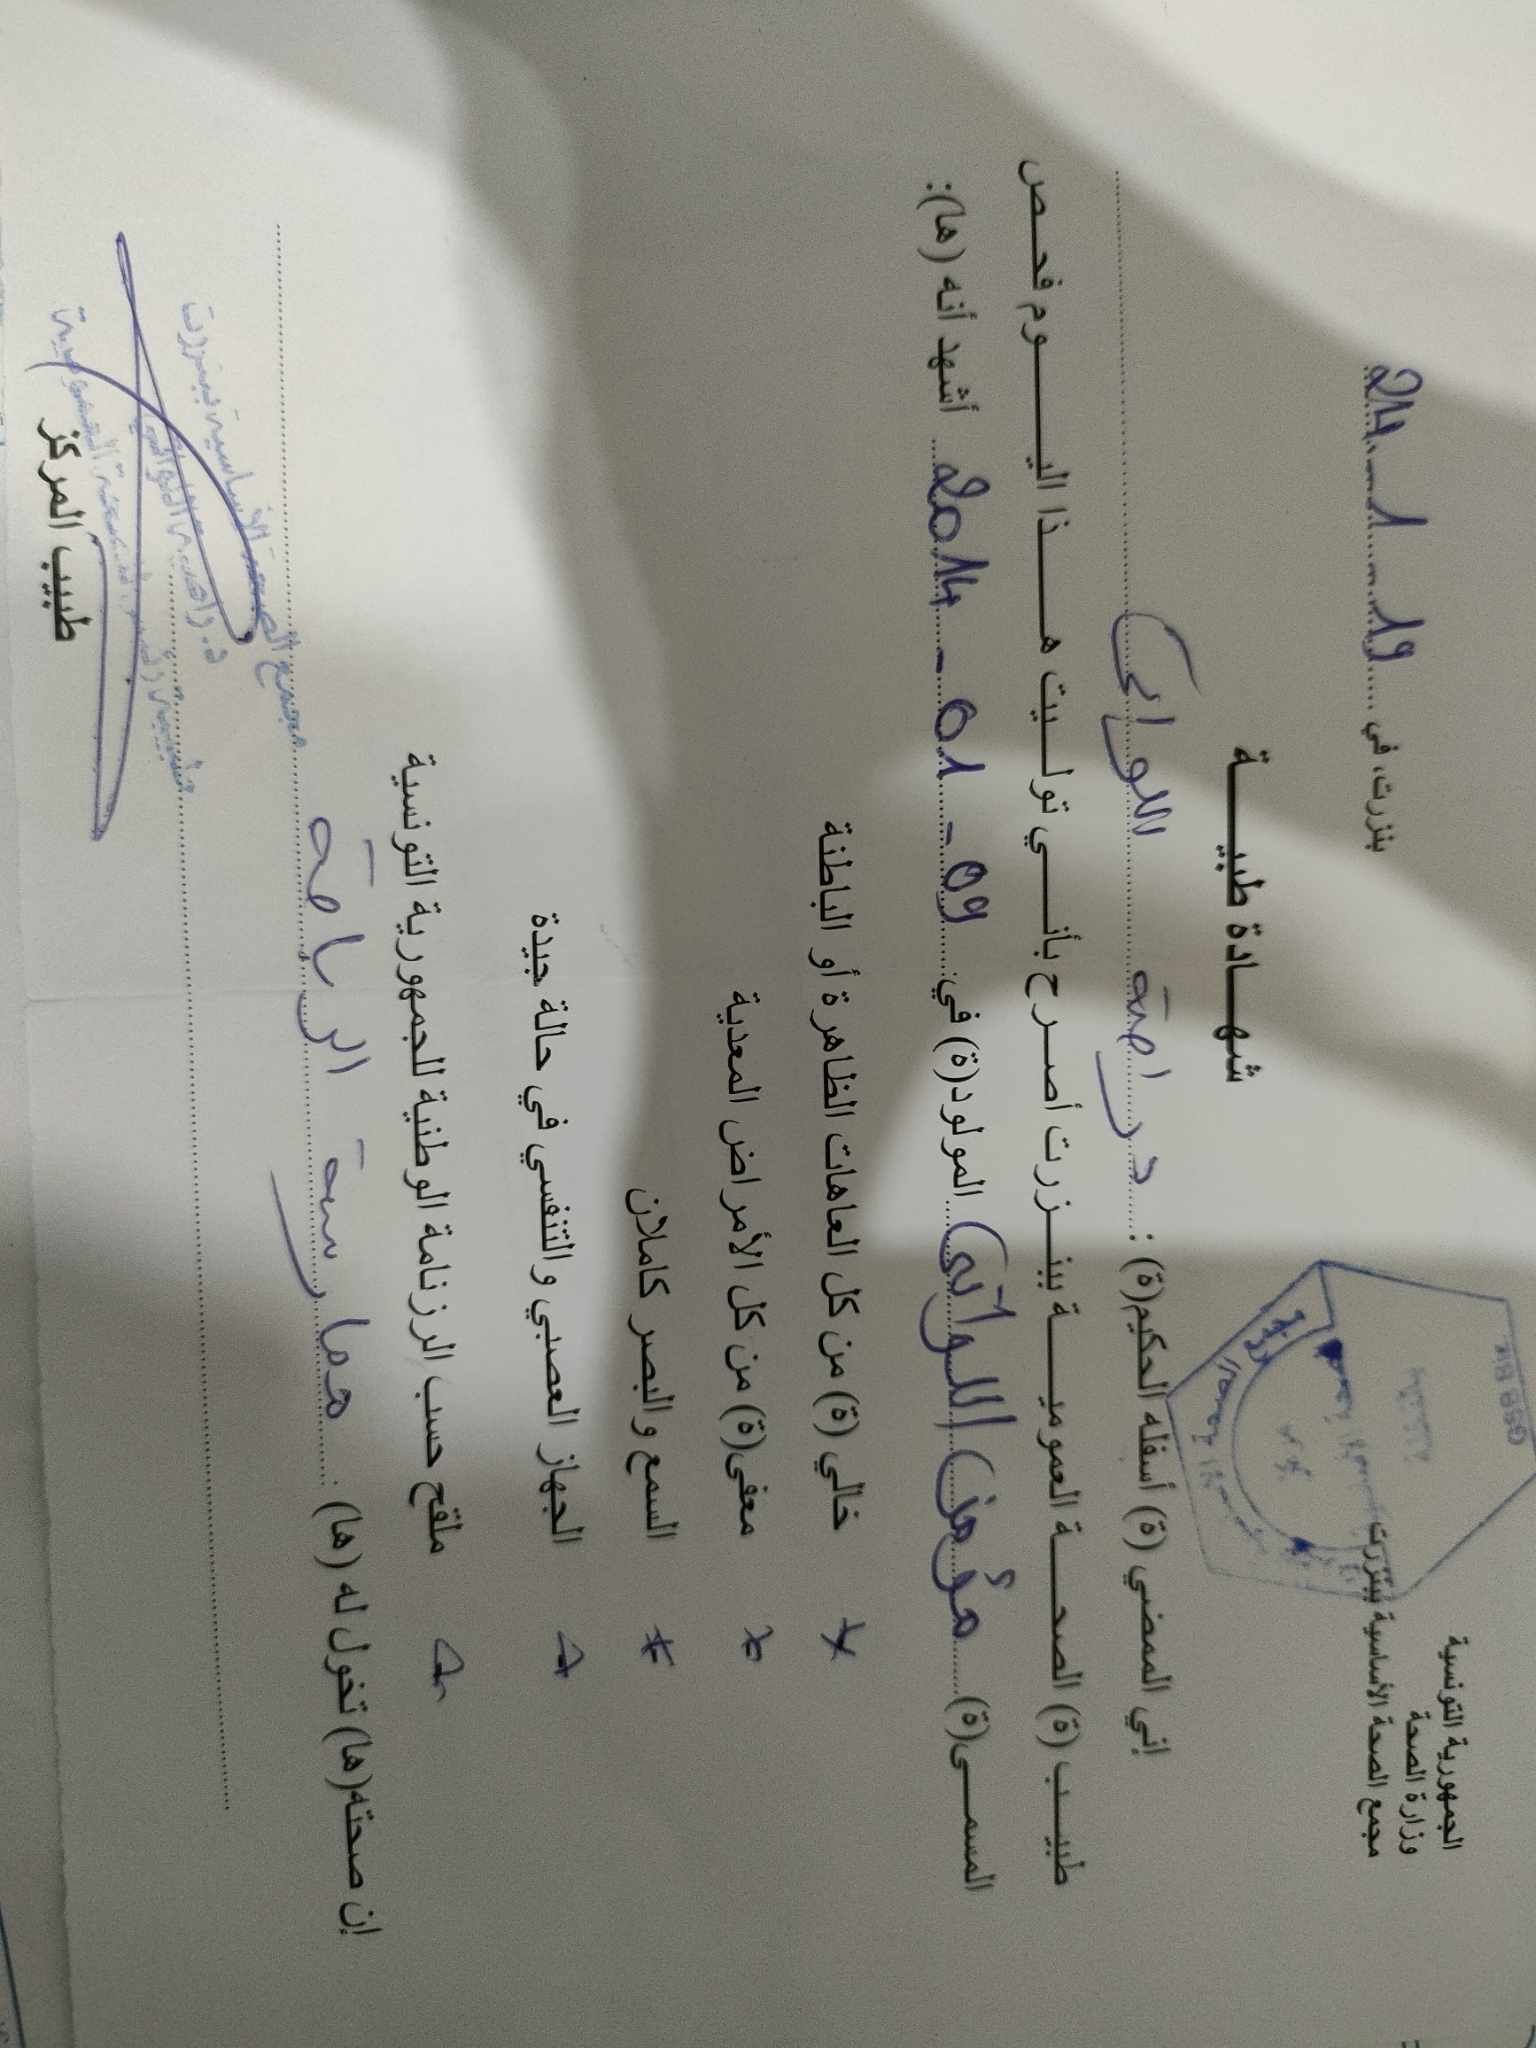 الجمهورية التونسية
وزارة الصحة
مجمع الصحة الأساسية ببنزرت
بنزرت، في 19 1 24
شهادة طبية
إني الممضي (ة) أسفله الحكيم(ة) : راضية اللواتي
طبيب (ة) الصحة العمومية ببنزرت أصرح بأني توليت هذا اليوم فحص
المسمى(ة) مؤمن اللواتي المولود(ة) في 09 - 01 - 2014 أشهد أنه (ها):
* خالي (ة) من كل العاهات الظاهرة أو الباطنة
* معفى(ة) من كل الأمراض المعدية
* السمع والبصر كاملان
* الجهاز العصبي والتنفسي في حالة جيدة
* ملقح حسب الرزنامة الوطنية للجمهورية التونسية
إن صحته(ها) تخول له (ها) : ممارسة الرياضة
مجمع الصحة الأساسية ببنزرت
طبيب المركز